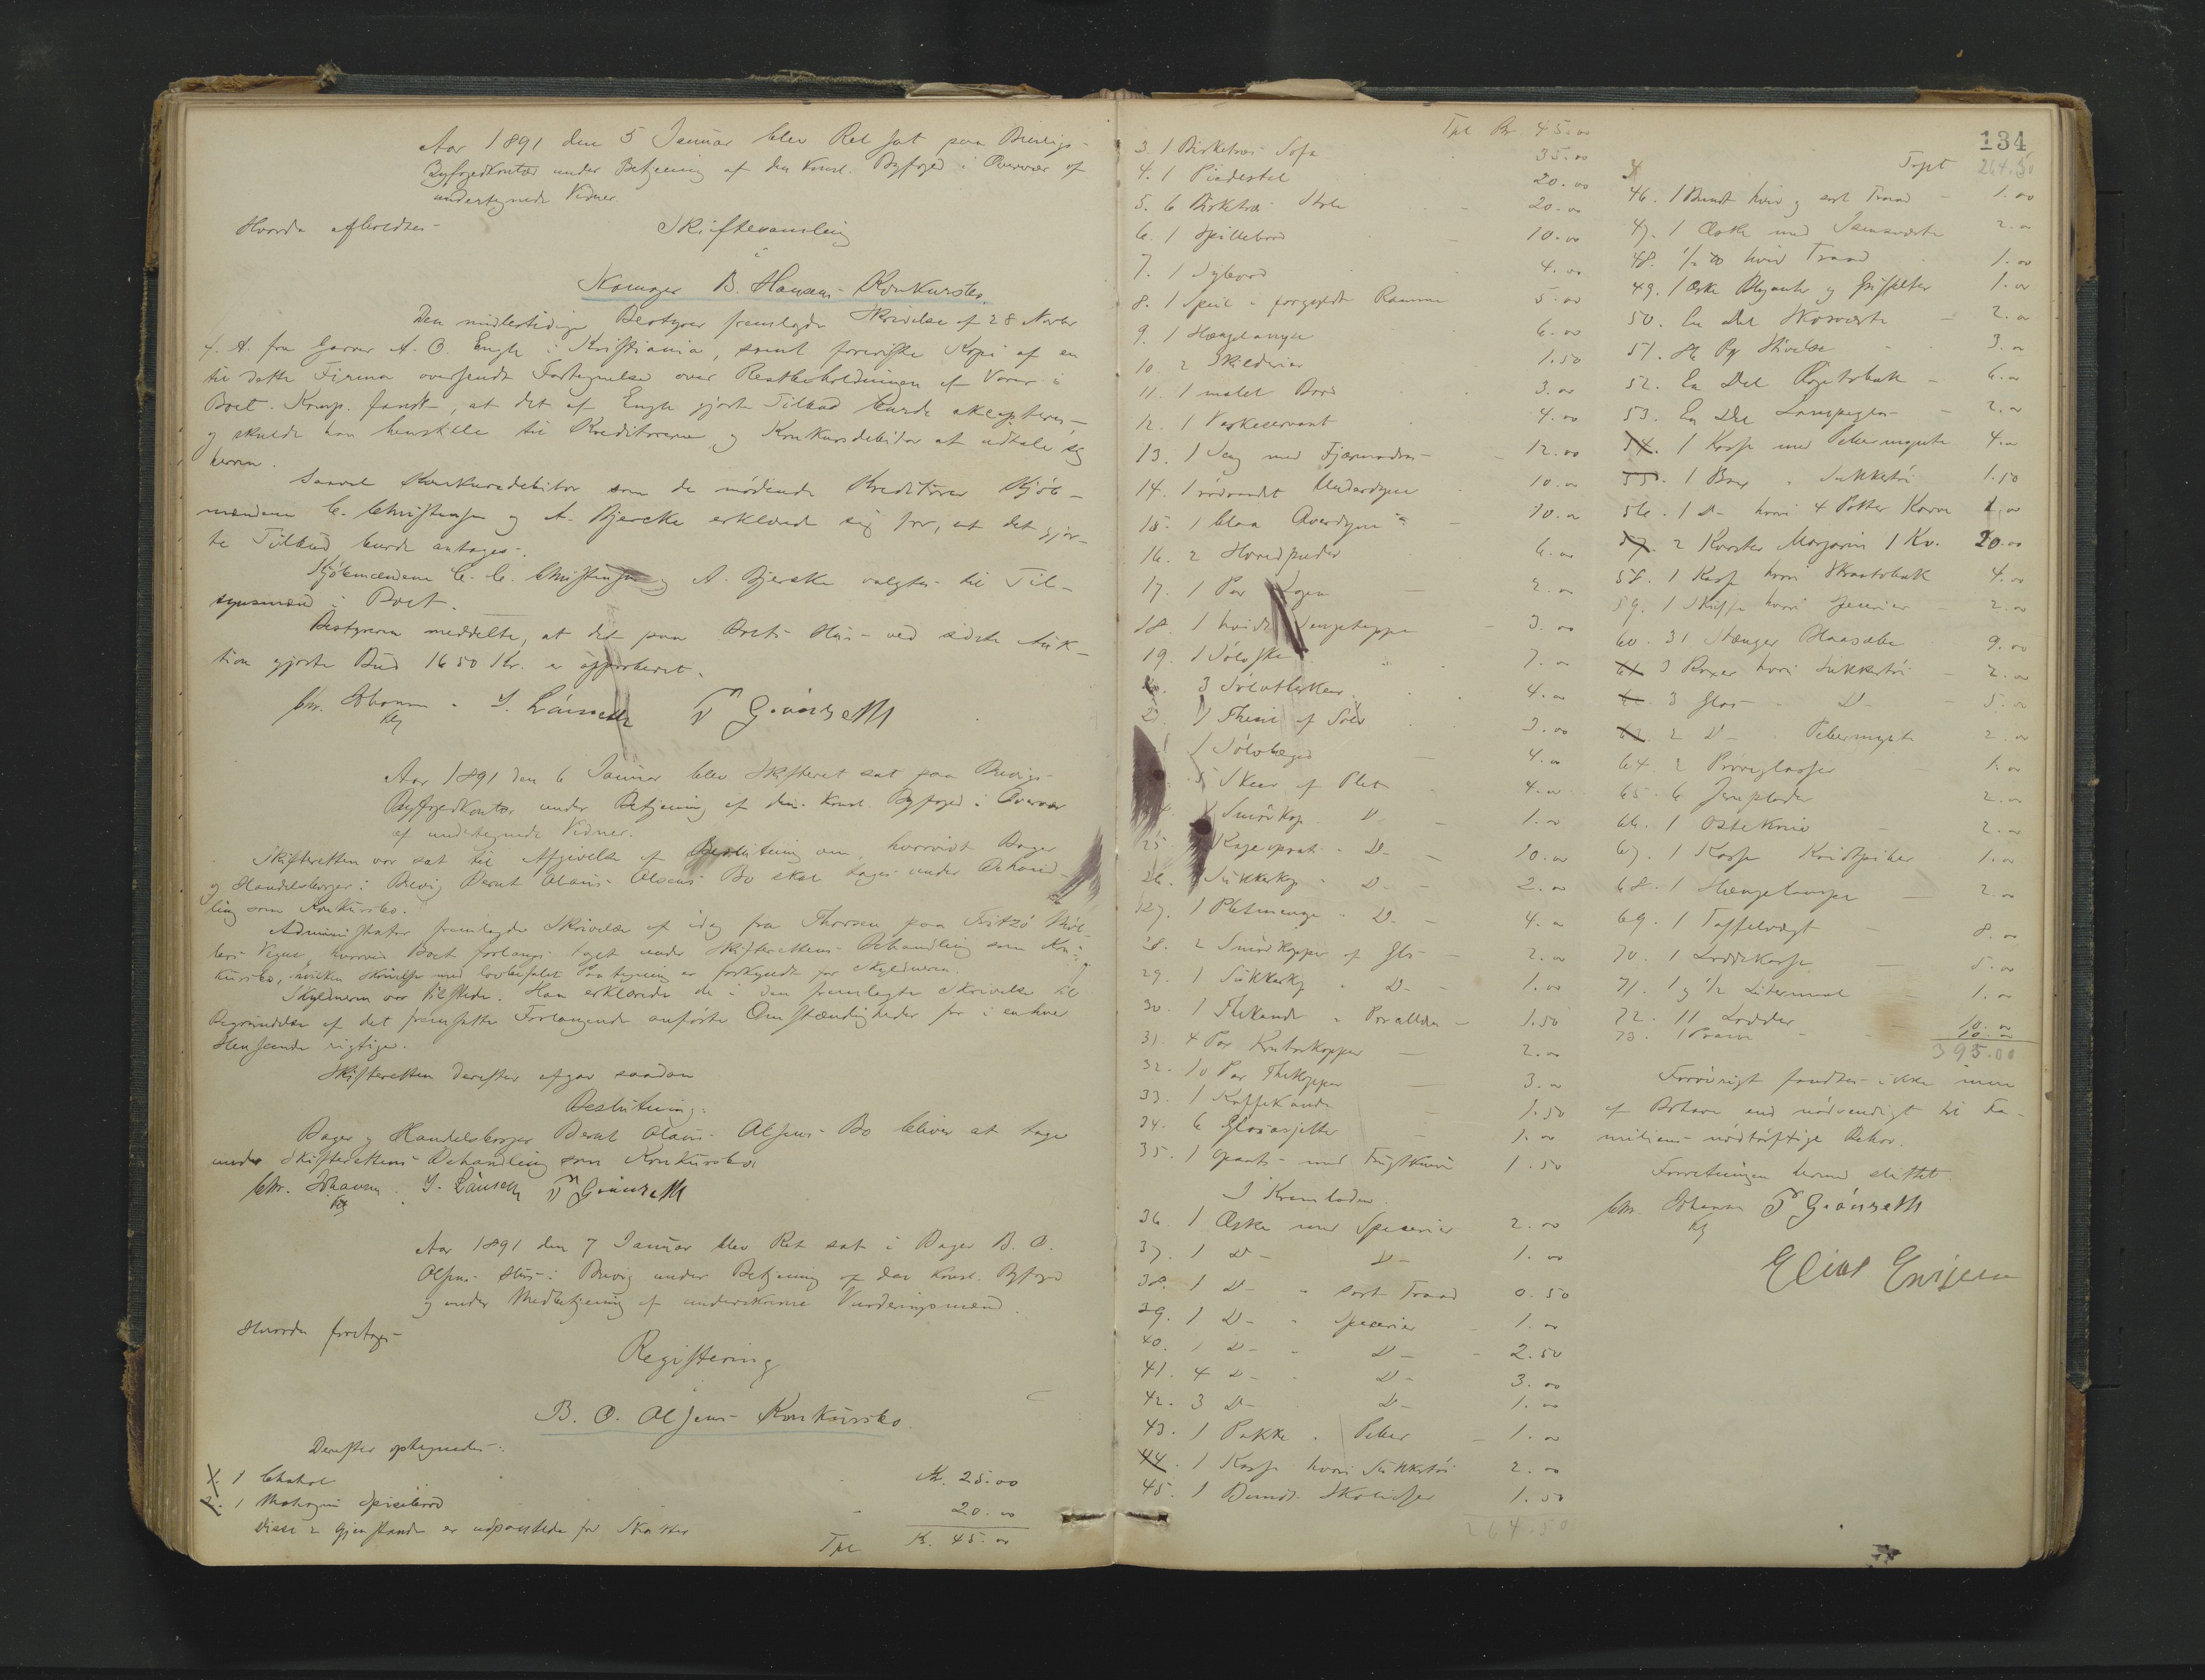 Aar 1891 den 5 Januar blev Ret sat paa Brevigs
Byfogedkontor under Betjening af den konst. Byfoged i Overvær af
undertegnede Vidner.
Hvorda afholdtes
Skiftesamling
i
Skomager B. Hansens Konkursbo.
Den midlertidige Bestyrer fremlagde Skrivelse af 28 Novbr
f. A. fra Garver A. O. Engh i Kristiania, samt foreviste Kopi af en
til dette Firma oversendt Fortegnelse over Restbeholdningen af Varer i
Boet. Komp. fandt, at det af Engh gjorte Tilbud burde akcepteres,
og skulde han henstille til Kreditorerne og Konkursdebitor at udtale sig
herom.
Saavel Konkursdebitor som de mødende Kreditorer Kjøb-
mændene C. Christensen og A. Bjercke erklærede sig for, at det gjor-
te Tilbud burde antages.
Kjøbmændene C. C. Christensen og A. Bjercke valgtes til Til-
synsmænd i Boet.
Bestyreren meddelte, at det paa Boets Hus ved sidste Auk-
tion gjorte Bud 1650 Kr. er approberet.
Chr. Johansen
Aar 1891 den 6 Januar blev Skifteret sat paa Brevigs
Byfogedkontor under Betjening af den konst. Byfoged i Overvær
af undertegnede Vidner.
Skifteretten var sat til Afgivelse af Beslutning om, hvorvidt Bager
og Handelsborger i Brevig Bernt Olaus Olsens Bo skal tages under Behand-
ling som Konkursbo.
Administrator fremlagde Skrivelse af idag fra Thorsen paa Fritzø Møl-
lers Vegne, hvorved Boet forlanges taget under Skifterettens Behandling som Kon-
kursbo, hvilken Skrivelse med lovbefalet Paategning er forkyndt for Skyldneren.
Skyldneren var tilstede. Han erklærede de i den fremlagte Skrivelse til
Begrundelse af det fremsatte Forlangende anførte Omstændigheder for i enhver
Henseende rigtige.
Skifteretten derefter afgav saadan
Beslutning:
Bager og Handelsborger Bernt Olaus Olsens Bo bliver at tage
under Skifterettens Behandling som Konkursbo.
Chr. Johansen
Aar 1891 den 7 Januar blev Ret sat i Bager B. O.
Olsens Hus i Brevig under Betjening af den konst. Byfoged
og under Medbetjening af underskrevne Vurderingsmænd.
Hvorda foretoges
Registrering
i
B. O. Olsens Konkursbo.
Derefter optegnedes:
1. 1 Chatol Kr. 25.00
2. 1 Mahogni Spisebord - 20.00
Disse 2 Gjenstande er udpantede for Skatter
Tpt Kr. 45.00
134
Tpt Kr 45.00
3. 1 Birketræs Sofa 35.00
4. 1 Piedestal 20.00
5. 6 Birketræs Stole 20.00
6. 1 Spillebord 10.00
7. 1 Sybord 4.00
8. 1 Speil i forgyldt Ramme 5.00
9. 1 Hængelampe 6.00
10. 2 Skilderier 1.50
11. 1 malet Bord 3.00
12. 1 Vaskeservant 4.00
13. 1 Seng med Fjærmadras 12.00
14. 1 rødrandet Underdyne 10.00
15. 1 blaa Overdyne 10.00
16. 2 Hovedpuder 6.00
17. 1 Par Lagen 2.00
18. 1 hvidt Sengeteppe 3.00
19. 1 Sølvske 7.00
3 Sølvtheskeer 4.00
21. 1 Thesi af Sølv 3.00
1 Sølvbæger 4.00
5 Skeer af Plet 4.00
1 Smørkop D- 1.00
25. Kageopsats D- 10.00
26. Sukkerkop D- 2.00
27. 1 Pletmenage D- 4.00
28. 2 Smørkopper af Glas 2.00
29. 1 Sukkerkop D- 1.00
30. 1 Thekande Porcellæn 1.50
31. 4 Par Kontorkopper 2.00
32. 10 Par Thekopper 3.00
33. 1 Kaffekande 1.50
34. 6 Glasasjetter 1.00
35. 1 med Frugtknive 1.50
I Kramboden.
36. 1 Æske med Specerier 2.00
37. 1 D- D- 1.00
38. 1 D- " sort Traad 0.50
39. 1 D- " Specerier 1.00
40. 1 D- " D- 2.50
41. 4 D- " D- 3.00
42. 3 D- D- 1.00
43. 1 Pakke Peber 1.00
44. 1 Kasse hvori Sukkertøi 2.00
45. 1 Bundt Skolisser 1.50
264.50
Tpt 264.50
46. 1 Bundt hvid og sort Traad 1.00
47. 1 Æske med 2.00
48. 1/2 hvid Traad 1.00
49. 1 Æske Blyanter og Grifler 1.00
50. En Del Skosværte 2.00
51. Stivelse 3.00
52. En Del Røgtobak 6.00
53. En Del Lampeglas 2.00
54. 1 Kasse med Pebermynte 4.00
55. 1 Boxe " Sukkertøi 1.50
56. 1 D- hvori 4 Potter 1.00
57. 2 Kvarter Margarin 1 Kv. 20.00
58. 1 Kasse hvori Skraatobak 4.00
59. 1 Skuffe hvori Specerier 2.00
60. 31 Stænger Blaasæbe 9.00
61. 3 Boxer hvori Sukkertøi 2.00
62. 3 Glas D- 5.00
63. 2 D- Pebermynte 2.00
64. 2 Prøveglasse 1.00
65. 6 Jernplader 2.00
66. 1 Ostekniv 2.00
67. 1 Kasse Kridtpiber 1.00
68. 1 Hængelampe 2.00
69. 1 Taffelvægt 8.00
70. 1 Loddekasse 5.00
71. 1 og 1/2 Litermaal 1.00
72. 11 Lodder 10.00
73. 1 Pram 10.00
395.00
Forøvrigt fandtes ikke mere
af Bohave end nødvendigt til Fa-
miliens nødtørftige Behov.
Forretningen hermed sluttet.
Chr. Johansen
Elias